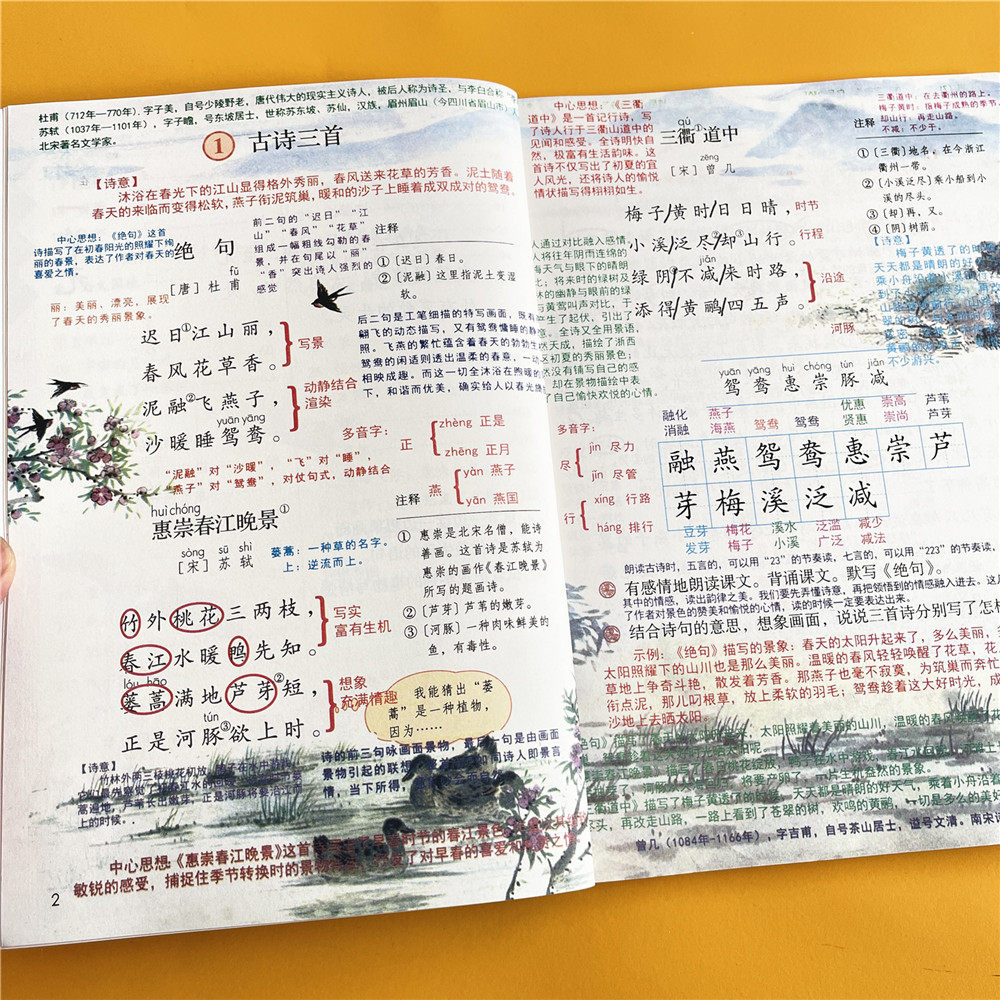 杜甫（712年—770年），字子美，自号少陵野老，唐代伟大的现实主义诗人，被后人称为诗圣，与李白合称
苏轼（1037年—1101年），字子瞻，号东坡居士，世称苏东坡、苏仙，汉族，眉州眉山（今四川省眉山市）人
北宋著名文学家。
1 古诗三首
【诗意】
沐浴在春光下的江山显得格外秀丽，春风送来花草的芳香。泥土随着
春天的来临而变得松软，燕子衔泥筑巢，暖和的沙子上睡着成双成对的鸳鸯。
中心思想：《绝句》这首
诗描写了在初春阳光的照耀下绚
丽的春景，表达了作者对春天的
喜爱之情。
绝句
fǔ
［唐］杜甫
前二句的“迟日”“江
山”“春风”“花草”
组成一幅粗线勾勒的春
景，并在句尾以“丽”
“香”突出诗人强烈的
感觉
注释
①［迟日］春日。
②［泥融］这里指泥土变湿
软。
丽：美丽、漂亮，展现
了春天的秀丽景象。
迟日①江山丽，
春风花草香。
写景
泥融②飞燕子，
yuān yāng
沙暖睡鸳鸯。
动静结合
渲染
后二句是工笔细描的特写画面，既有
翩飞的动态描写，又有鸳鸯慵睡的静
照。飞燕的繁忙蕴含着春天的勃勃生
鸳鸯的闲适则透出温柔的春意，一动
相映成趣。而这一切全沐浴在煦暖的
下，和谐而优美，确实给人以春光
多音字：
正
zhèng 正是
zhēng 正月
燕
yàn 燕子
yān 燕国
“泥融”对“沙暖”，“飞”对“睡”，
“燕子”对“鸳鸯”，对仗句式，动静结合
huì chóng
惠崇春江晚景①
sòng sū shì
［宋］苏轼
蒌蒿：一种草的名字。
上：逆流而上。
注释
① 惠崇是北宋名僧，能诗
善画。这首诗是苏轼为
惠崇的画作《春江晚景》
所写的题画诗。
②［芦芽］芦苇的嫩芽。
③［河豚］一种肉味鲜美的
鱼，有毒性。
竹外桃花三两枝，
春江水暖鸭先知。
写实
富有生机
lóu hāo
蒌蒿满地芦芽②短，
tún
正是河豚③欲上时。
想象
充满情趣
我能猜出“蒌
蒿”是一种植物，
因为……
【诗意】
上的时候。
中心思想：《惠崇春江晚景》这首
敏锐的感受，捕捉住季节转换时的景物
2
中心思想：《三衢
道中》是一首记行诗，写
了诗人行于三衢山道中的
见闻和感受。全诗明快自
然，极富有生活韵味。这
首诗不仅写出了初夏的宜
人风光，还将诗人的愉悦
情状描写得栩栩如生。
qú
三衢①道中
zēng
［宋］曾几
三衢道中：在去衢州的路上，
梅子黄时：指梅子成熟的季节。
却山行：再走山路。
不减：不少于。
注释
①［三衢］地名，在今浙江
衢州一带。
②［小溪泛尽］乘小船到小
溪的尽头。
③［却］再，又。
④［阴］树荫。
梅子/黄时/日日晴，时节
小溪/泛尽②/却③山行。行程
jiǎn
绿阴④/不减/来时路，
添得/黄鹂/四五声。
沿途
【诗意】
梅子黄透了的时
天天都是晴朗的好
乘小舟沿
不少游兴。
人通过对比融入感情。
人将往年阴雨连绵的
梅天气与眼下的晴朗
比；将来时的绿树及
林的幽静与眼前的绿
与黄莺叫声对比，于
产生了起伏，引出了
意。全诗又全用景语，
然天成，描绘了浙西
区初夏的秀丽景色；
然没有铺写自己的感
却在景物描绘中表
了自己愉快欢悦的心情。
河豚
yuān yāng huì chóng tún jiǎn
鸳鸯惠崇豚减
融化 燕子 优惠 崇高 芦苇
消融 海燕 鸳鸯 鸳鸯 贤惠 崇尚 芦芽
融燕鸳鸯惠崇芦
芽梅溪泛减
豆芽 梅花 溪水 泛滥 减少
发芽 梅子 小溪 广泛 减法
多音字：
尽
jìn 尽力
jǐn 尽管
行
xíng 行路
háng 排行
朗读古诗时，五言的，可以用“23”的节奏读，七言的，可以用“223”的节奏读，
有感情地朗读课文。背诵课文。默写《绝句》。
其中的情感，读出韵律之美。我们要先弄懂诗意，再把领悟到的情感融入进去。这
了作者对景色的赞美和愉悦的心情，读的时候一定要表达出来。
结合诗句的意思，想象画面，说说三首诗分别写了怎样
示例：《绝句》描写的景象：春天的太阳升起来了，多么美丽，
太阳照耀下的山川也是那么美丽。温暖的春风轻轻唤醒了花草，花
草地上争奇斗艳，散发着芳香。那燕子也毫不寂寞，为筑巢而奔忙
衔点泥，那儿叼根草，放上柔软的羽毛；鸳鸯趁着这大好时光，成
沙地上去晒太阳。
道中》描写了梅子黄透了的时候，天天都是晴朗的好天气，乘着小舟沿着
尽头，再改走山路，一路上看到了苍翠的树，欢鸣的黄鹂，一切是多么的美好
曾几（1084年-1166年），字吉甫，自号茶山居士，谥号文清。南宋诗